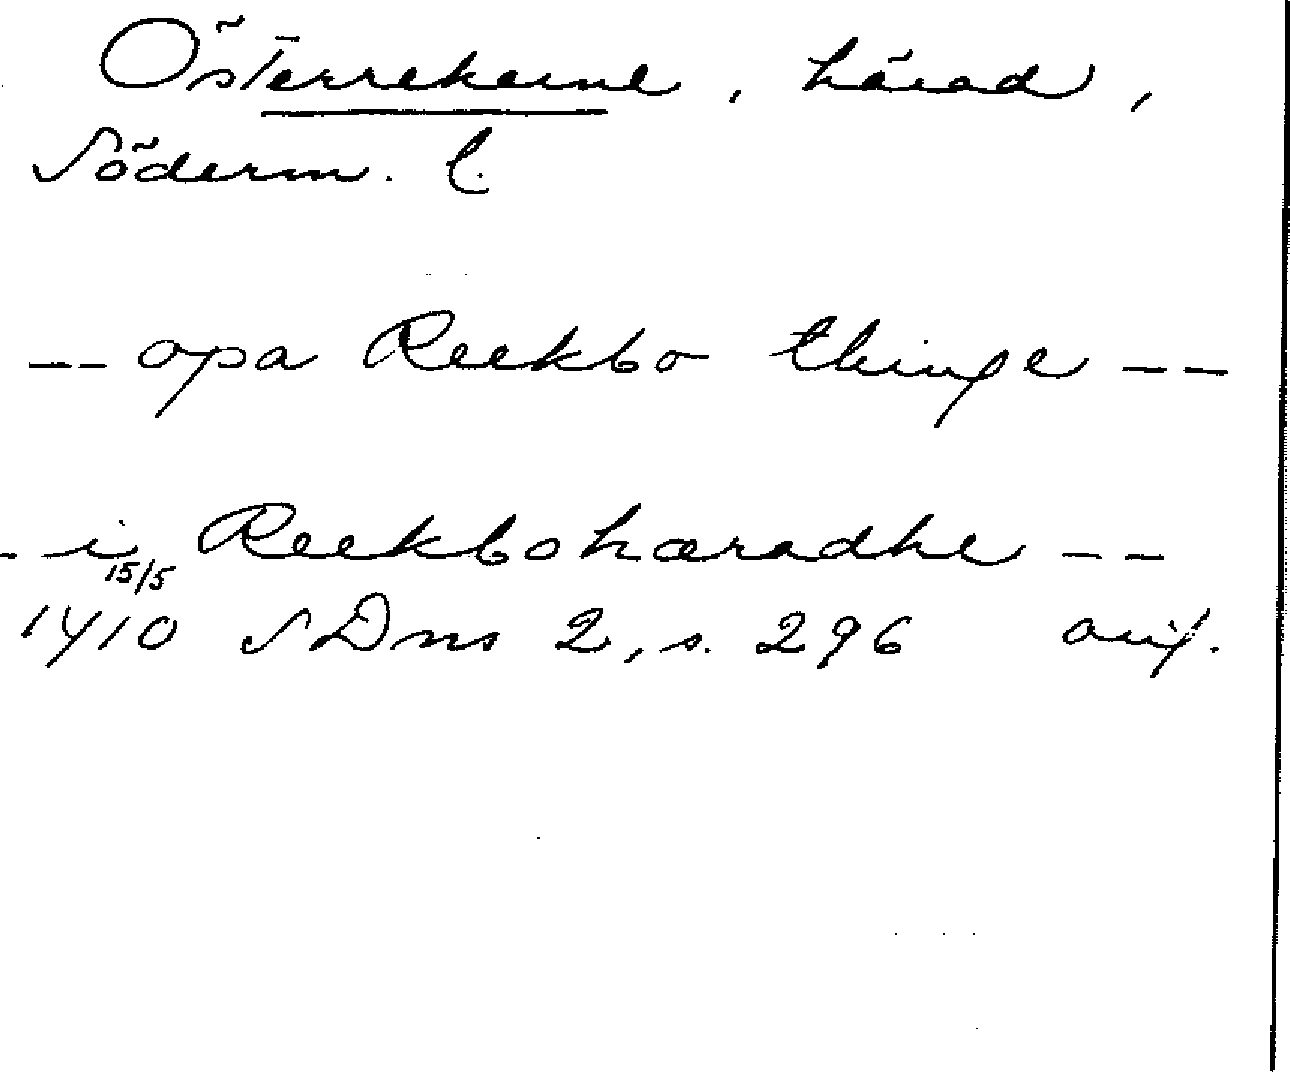 Österrekarne, härad,
Söderm. l.
-- opa Reekbo thinge --
-- i Reekbohæradhe --
15/5
1410 SDns 2, s. 296 orig.